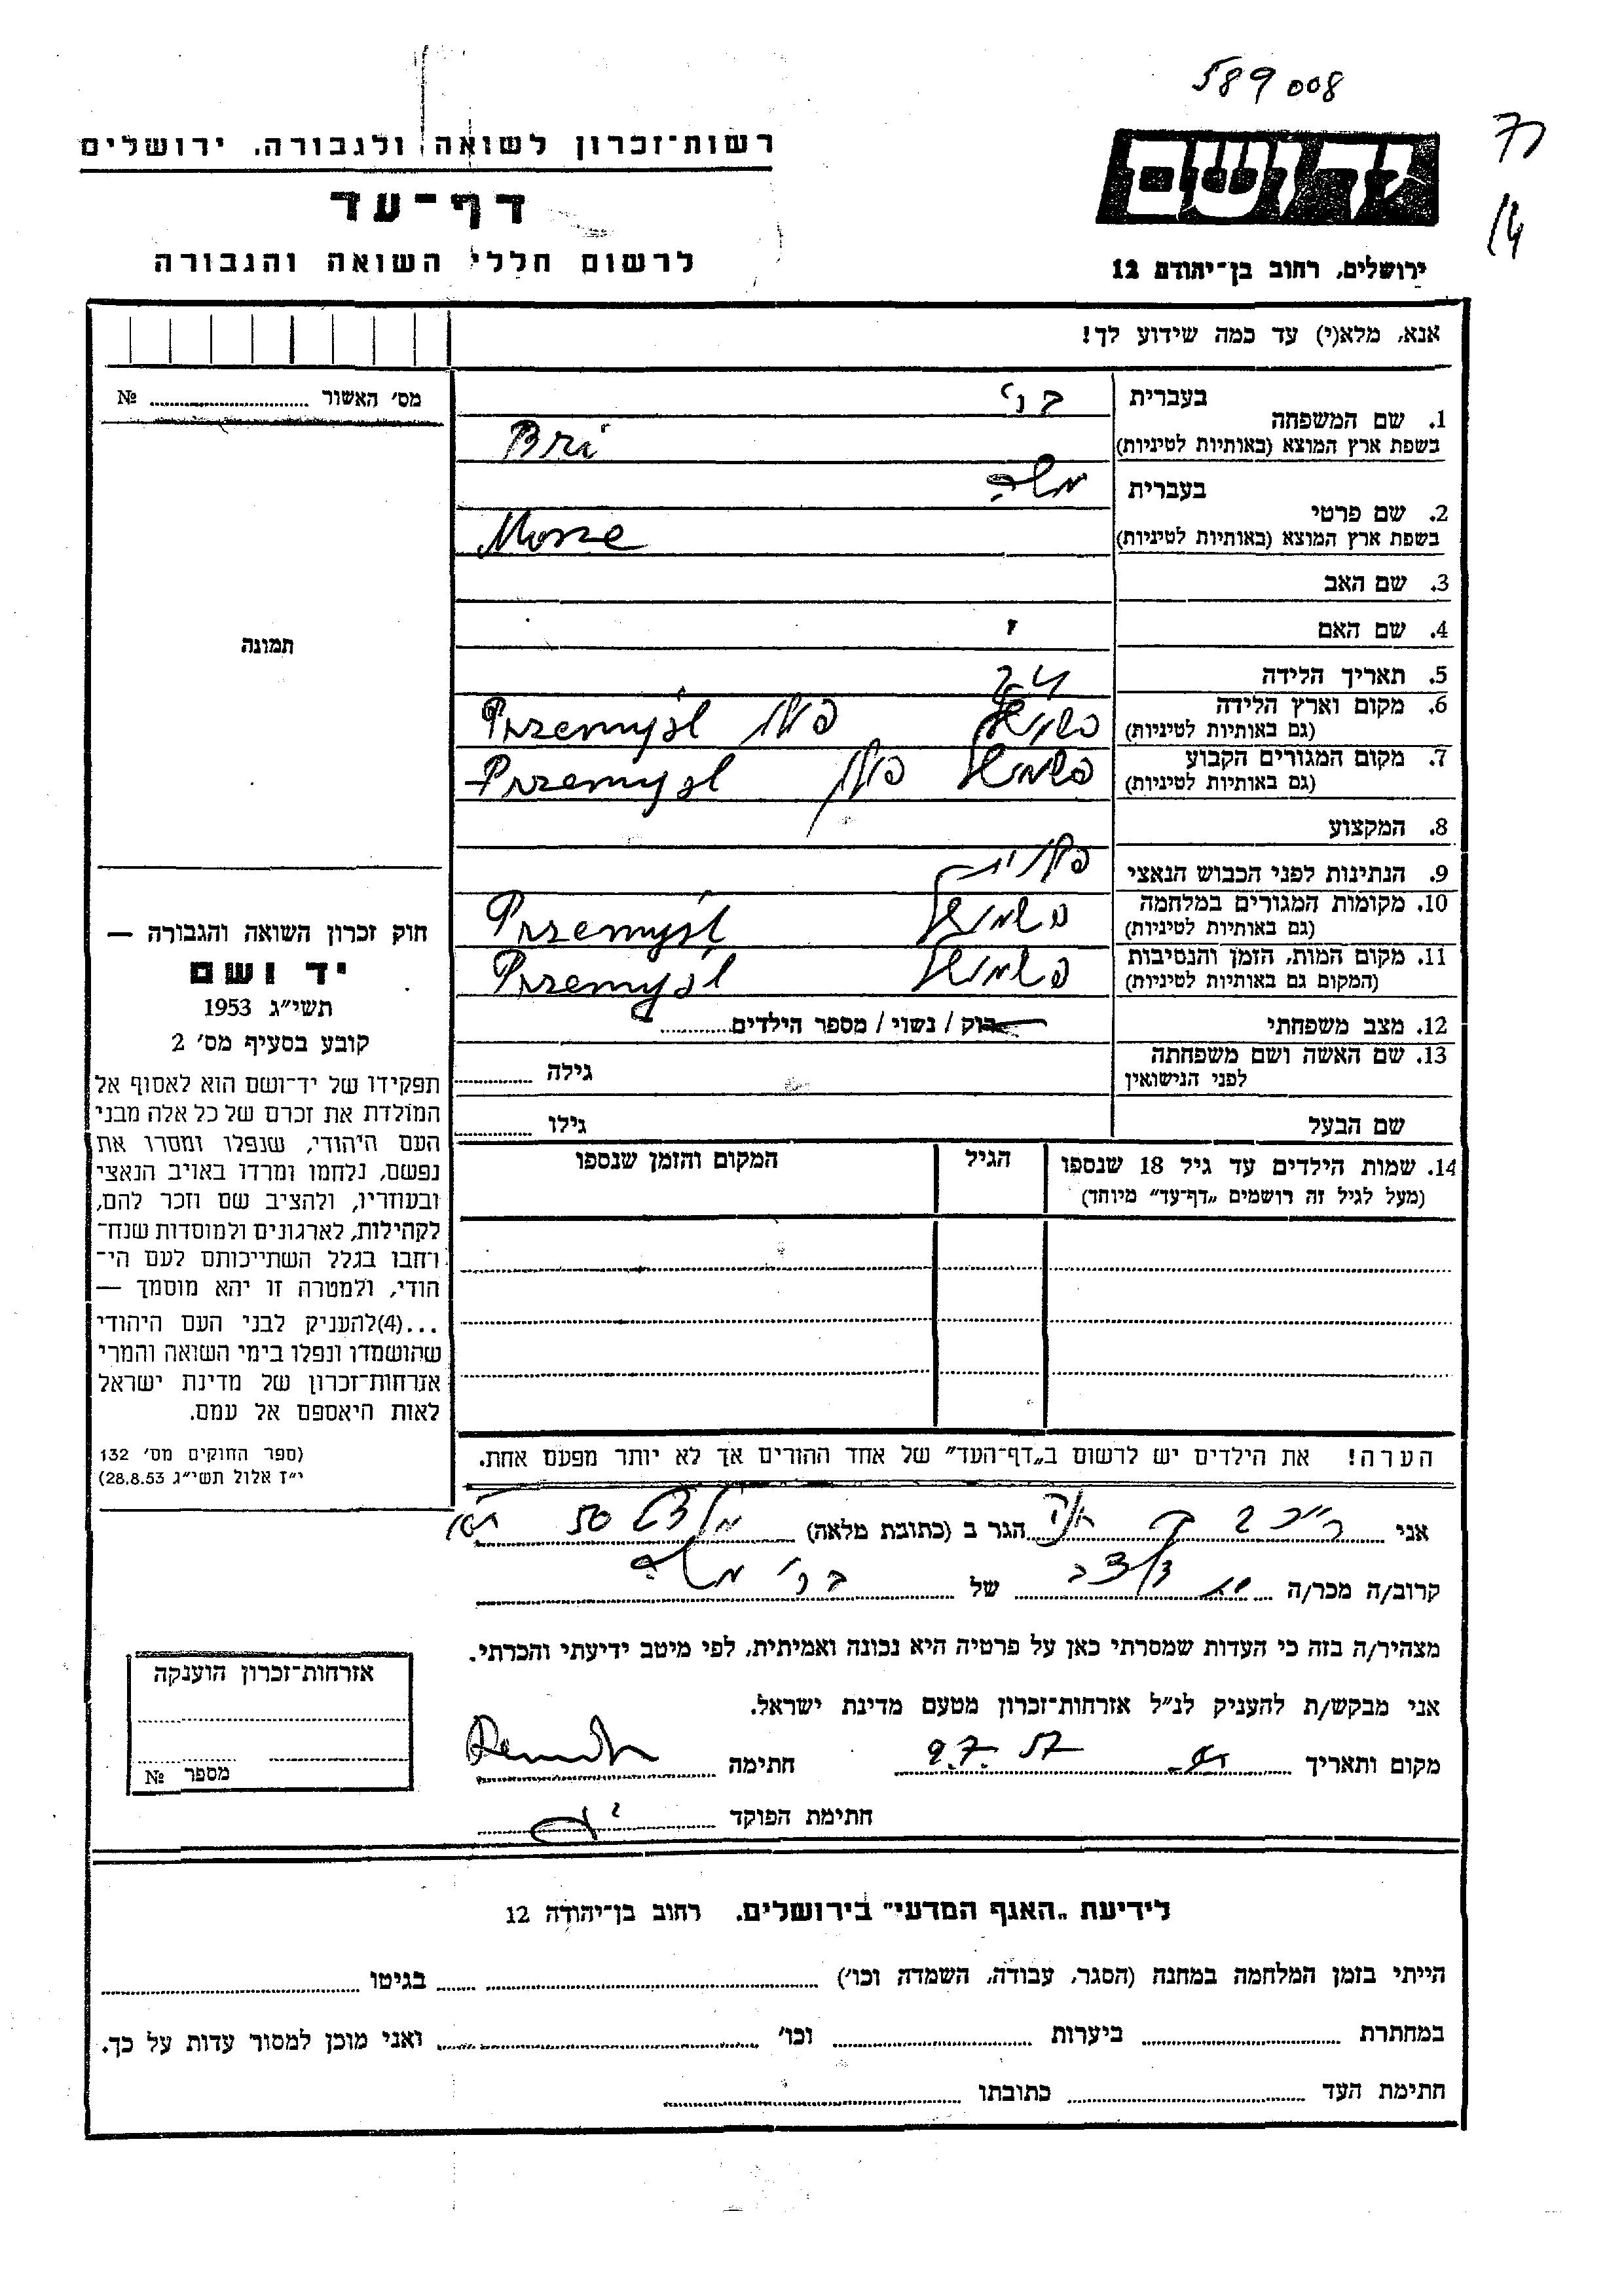 589008
77
14
יד ושם
ירושלים, רחוב בן־יהודה 12
רשות־זכרון לשואה ולגבורה, ירושלים
דף־עד
לרשום חללי השואה והגבורה
אנא, מלא(י) עד כמה שידוע לך!
מס׳ האשור ............ №
תמונה
1. שם המשפחה בעברית
בשפת ארץ המוצא (באותיות לטיניות)
Bri
2. שם פרטי בעברית משה
בשפת ארץ המוצא (באותיות לטיניות) Mosze
3. שם האב
4. שם האם
5. תאריך הלידה
6. מקום וארץ הלידה פשמישל פולין Przemyśl
(גם באותיות לטיניות)
7. מקום המגורים הקבוע פשמישל פולין Przemyśl
(גם באותיות לטיניות)
8. המקצוע
9. הנתינות לפני הכבוש הנאצי פולנית
10. מקומות המגורים במלחמה פשמישל Przemyśl
(גם באותיות לטיניות)
11. מקום המות, הזמן והנסיבות פשמישל Przemyśl
(המקום גם באותיות לטיניות)
12. מצב משפחתי רוק / נשוי / מספר הילדים............
13. שם האשה ושם משפחתה
לפני הנישואין גילה ............
שם הבעל גילו ............
14. שמות הילדים עד גיל 18 שנספו הגיל המקום והזמן שנספו
(מעל לגיל זה רושמים „דף־עד״ מיוחד)
הערה! את הילדים יש לרשום ב„דף־העד״ של אחד ההורים אך לא יותר מפעם אחת.
חוק זכרון השואה והגבורה —
יד ושם
תשי״ג 1953
קובע בסעיף מס׳ 2
תפקידו של יד־ושם הוא לאסוף אל
המולדת את זכרם של כל אלה מבני
העם היהודי, שנפלו ומסרו את
נפשם, נלחמו ומרדו באויב הנאצי
ובעוזריו, ולהציב שם וזכר להם,
לקהילות, לארגונים ולמוסדות שנח־
רחבו בגלל השתייכותם לעם הי־
הודי, ולמטרה זו יהא מוסמך —
...(4) להעניק לבני העם היהודי
שהושמדו ונפלו בימי השואה והמרי
אזרחות־זכרון של מדינת ישראל
לאות היאספם אל עמם.
(ספר החוקים מס׳ 132
י״ז אלול תשי״ג 28.8.53)
אני ............ הגר ב (כתובת מלאה) ............ 50
קרוב/ה מכר/ה ............ של ............ משה
מצהיר/ה בזה כי העדות שמסרתי כאן על פרטיה היא נכונה ואמיתית, לפי מיטב ידיעתי והכרתי.
אני מבקש/ת להעניק לנ״ל אזרחות־זכרון מטעם מדינת ישראל.
מקום ותאריך ............ 9.7.57 חתימה ............
חתימת הפוקד ............
אזרחות־זכרון הוענקה
מספר №
לידיעת „האגף המדעי״ בירושלים, רחוב בן־יהודה 12
הייתי בזמן המלחמה במחנה (הסגר, עבודה, השמדה וכו׳) ............ בגיטו ............
במחתרת ............ ביערות ............ וכו׳ ............ ואני מוכן למסור עדות על כך.
חתימת העד ............ כתובתו ............